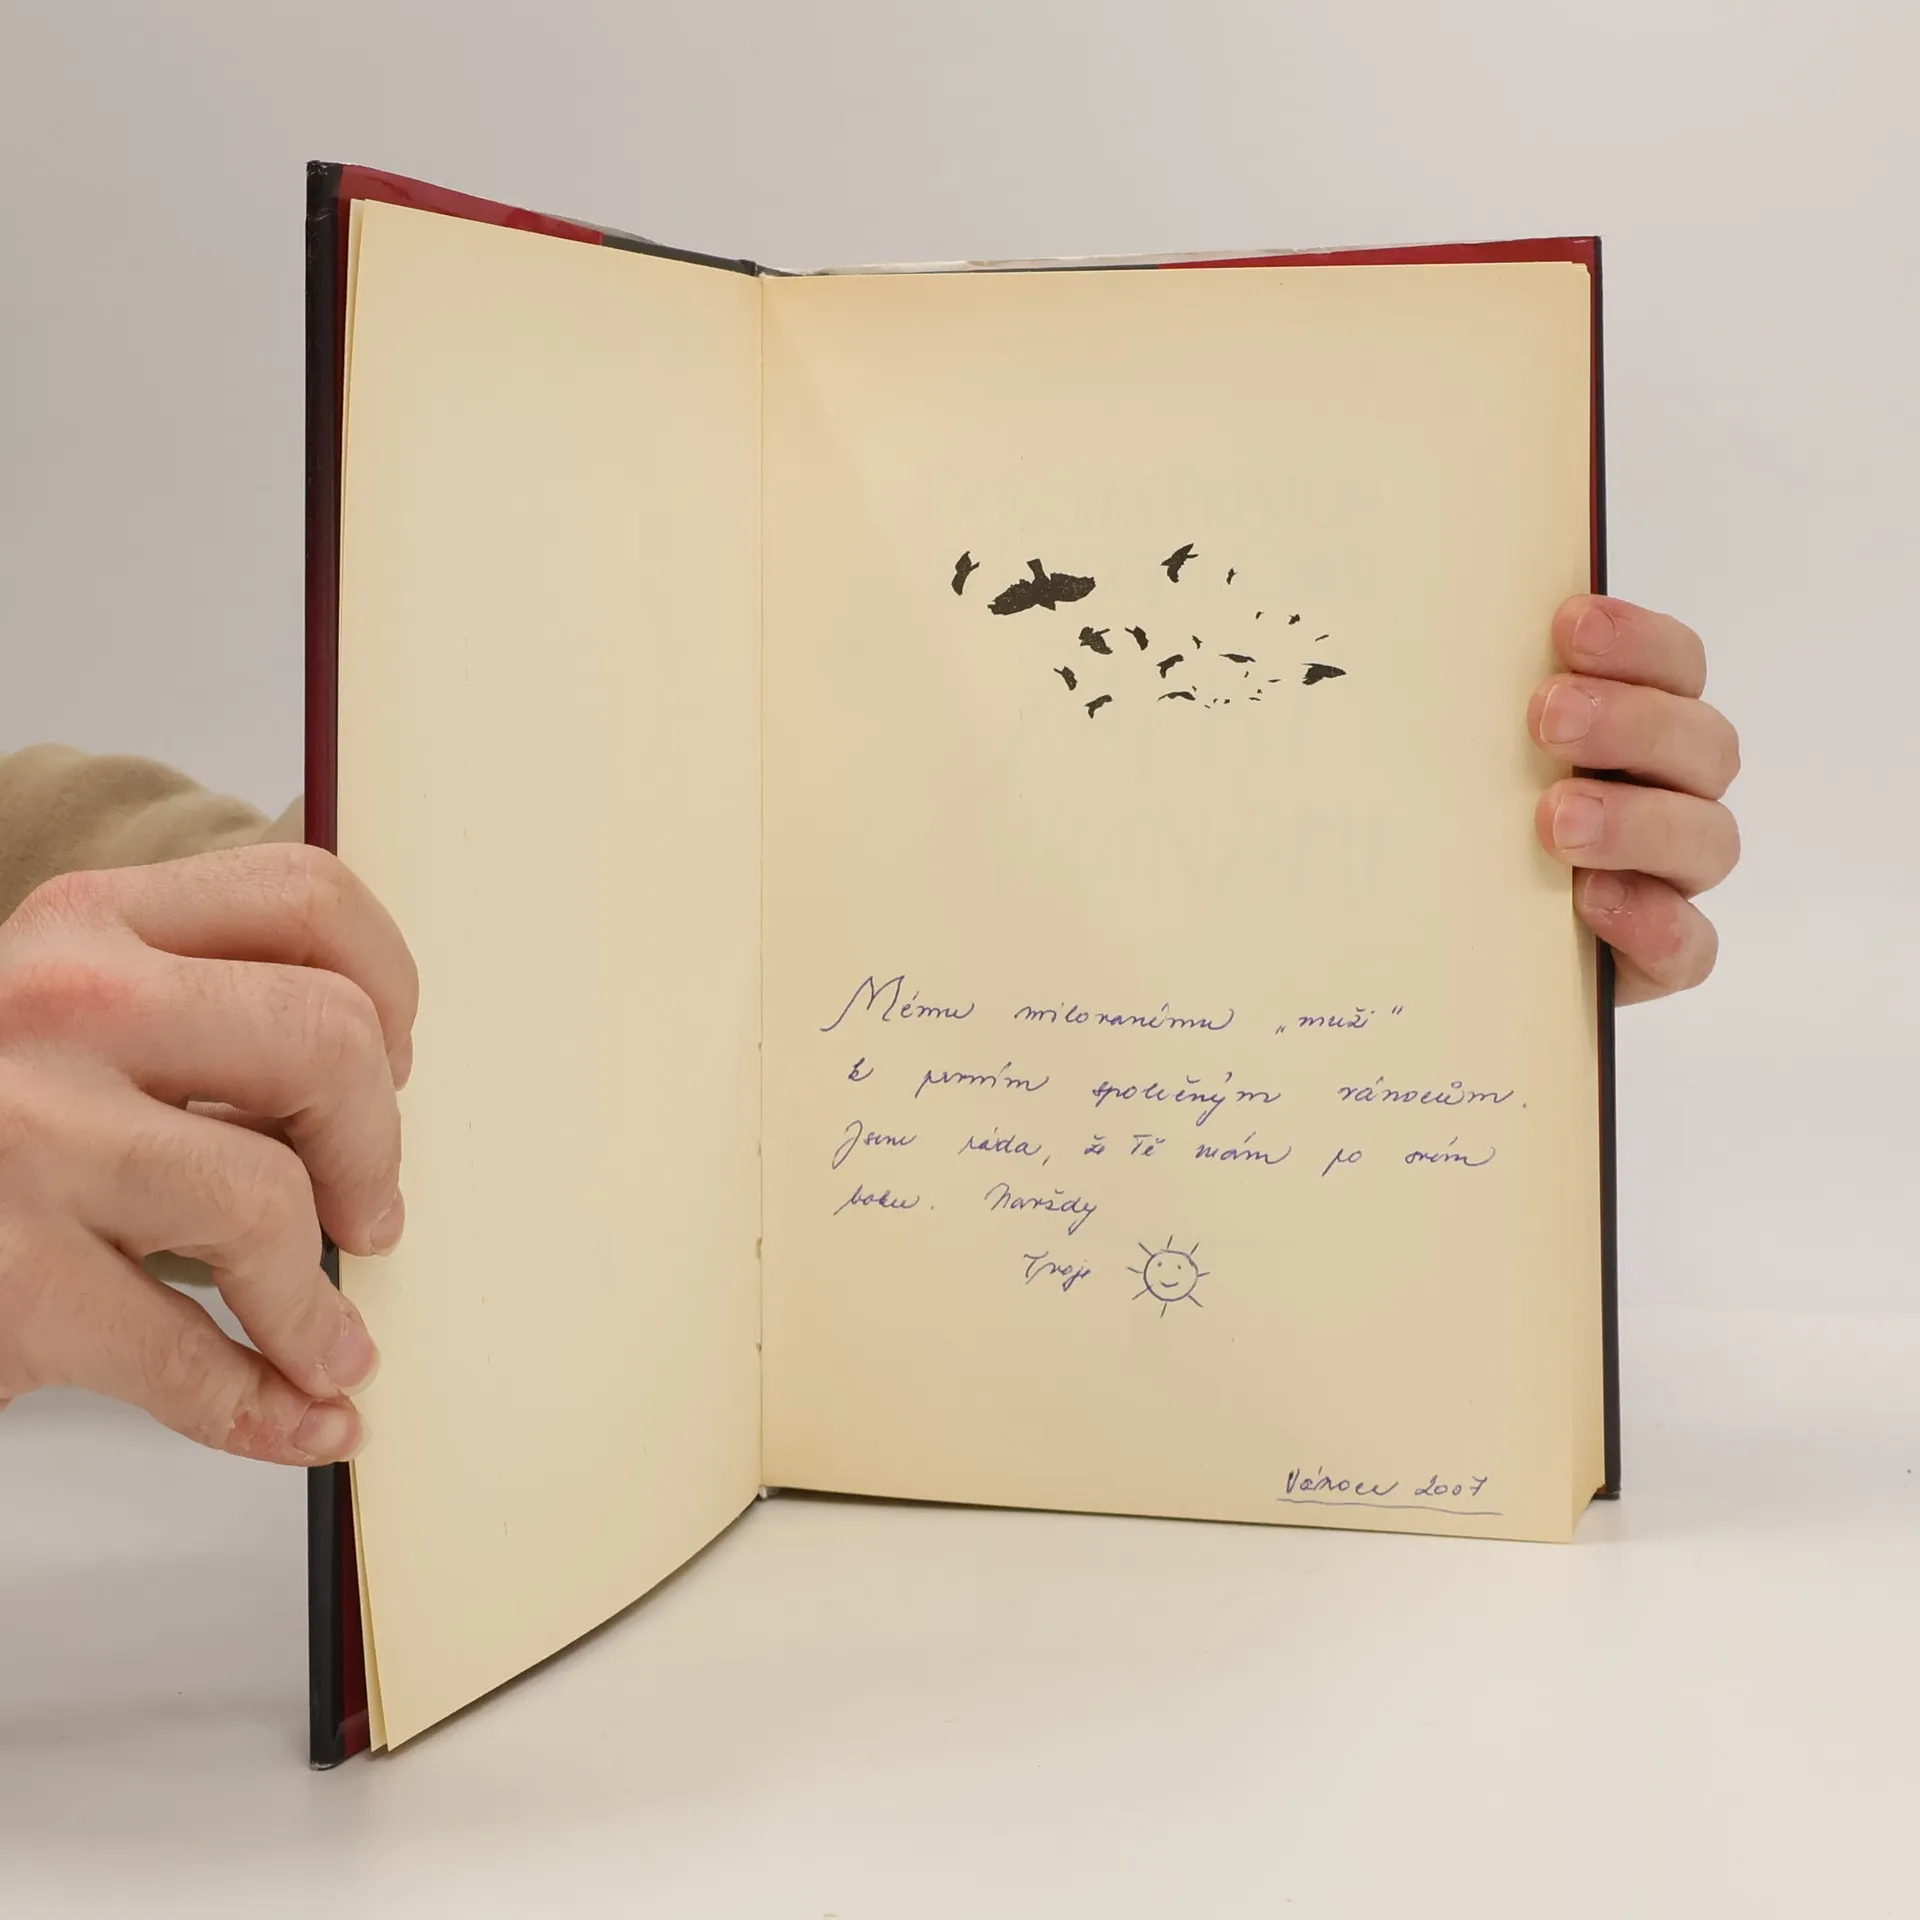 Mému milovanému „muži“
k prvním společným vánocům.
Jsem ráda, že Tě mám po svém
boku. Navždy
Tvoje
Vánoce 2007